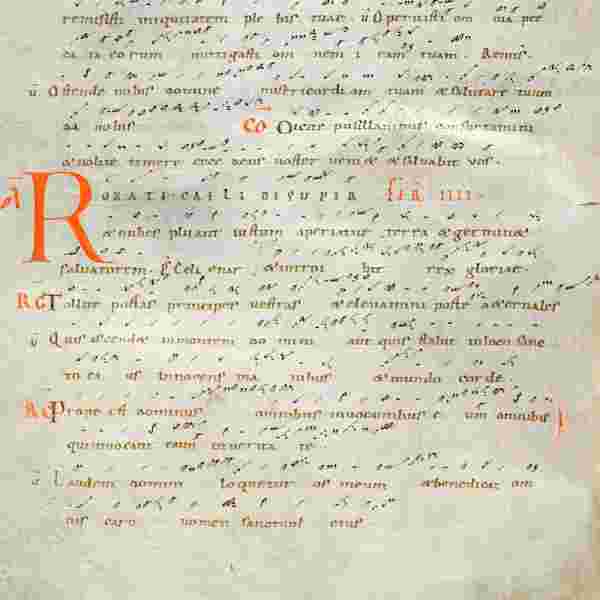 remisisti iniquitatem ple bis tuae v Operuisti om nia pec
ca ta eorum mitigasti om nem i ram tuam. Remis.
v Ostende nobis domine misericordi am tuam & salutare tuum
da nobis CO Dicite pusillanimes confortamini
& nolite timere ecce deus noster veni& & saluabit vos.
RORATE CAELI DESUPER FER IIII
& nubes pluant iustum aperiatur terra & germin&
saluatorem. Ps Celi enar & interni bit rex gloriae.
RG Tollite portas principes vestras & eleuamini porte a&ernales
v Quis ascend& in montem do mini aut quis stabit in loco sanc
to ea us Innocens ma nibus & mundo corde.
RG Prope est dominus omnibus inuocantibus e um omnibus
qui inuocant eum in uerita te
v Laudem domini loquetur os meum & benedicat om
nis caro nomen sanctum eius